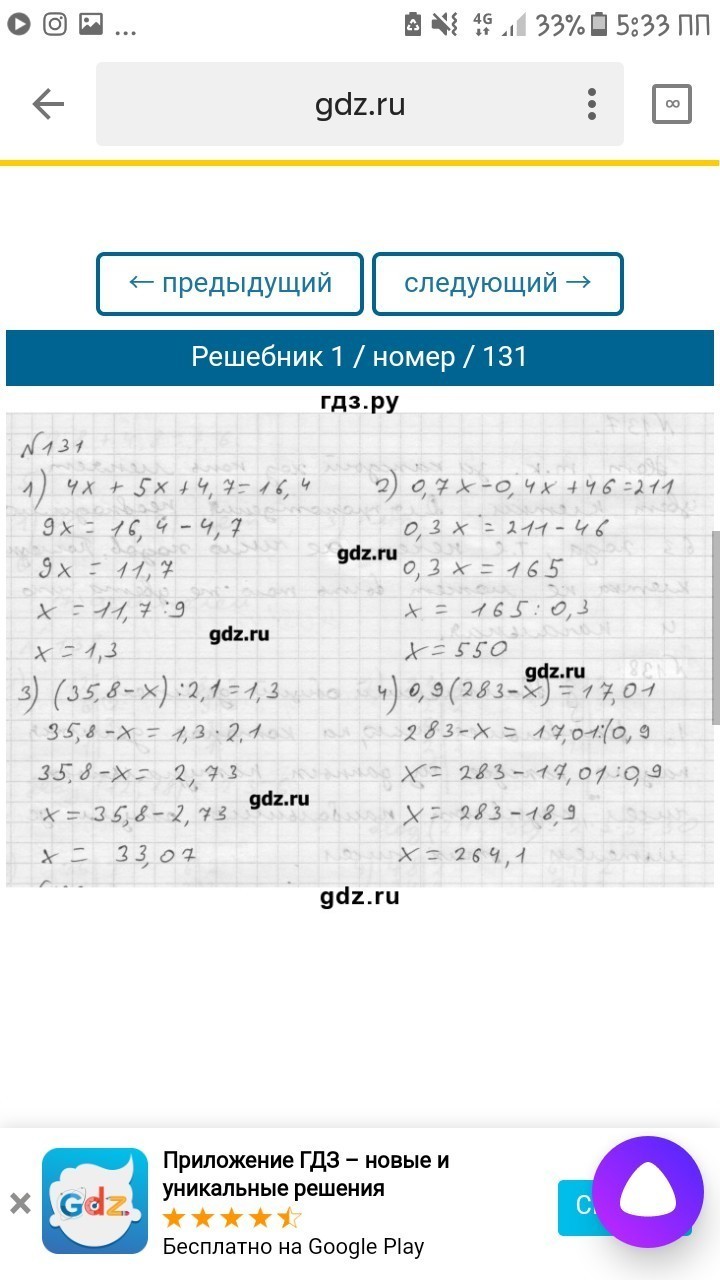 ... 4G 33% 5:33 ПП
gdz.ru
∞
← предыдущий следующий →
Решебник 1 / номер / 131
гдз.ру
№131
1) 4x + 5x + 4,7 = 16,4
9x = 16,4 - 4,7
9x = 11,7
x = 11,7 : 9
x = 1,3
2) 0,7x - 0,4x + 46 = 211
0,3x = 211 - 46
0,3x = 165
x = 165 : 0,3
x = 550
gdz.ru
gdz.ru
gdz.ru
3) (35,8 - x) : 2,1 = 1,3
35,8 - x = 1,3 · 2,1
35,8 - x = 2,73
x = 35,8 - 2,73
x = 33,07
4) 0,9(283 - x) = 17,01
283 - x = 17,01:(0,9
x = 283 - 17,01 : 0,9
x = 283 - 18,9
x = 264,1
gdz.ru
gdz.ru
Gdz.
Приложение ГДЗ – новые и
уникальные решения
Бесплатно на Google Play